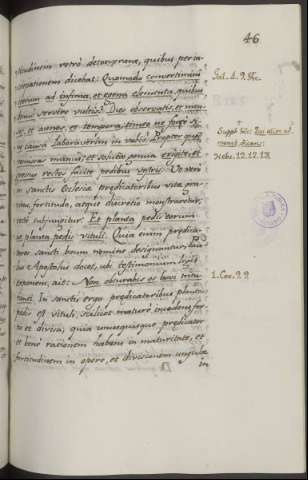 46
etudinem retro detorserant, quibus per in-
crepationem dicebat: Quomodo convertimini
iterum ad infirma, et egena elementa, quibus
denuo servire vultis? Dies observatis, et men-
ses, et annos, et tempora, timeo ne forte si-
ne causa laboraverim in vobis. Propter quod
remissas manus, et soluta genua erigite, et
gressus rectos facite pedibus vestris. Ut vero
in sanctis Ecclesiæ predicatoribus vita gra-
vitas, fortitudo, atque discretio monstraretur,
recte subjungitur: Et planta pedis eorum
quasi planta pedis vituli. Quia enim predica-
tores sancti boum nomine designantur, Pau-
lus Apostolus docet, ubi testimonium legis
exponens, ait: Non obturabis os bovi tritu-
ranti. In sanctis ergo predicatoribus planta
pedis est vituli, scilicet mature incedens, for-
tis et divisa, quia unusquisque predicator
et bene rationem habens in maturitate, et
fortitudinem in opere, et divisionem ungulæ
in
Gal. 4. 9. Etc.
Supple hic: Qui alios ad-
monet dicens:
Hebr. 12. 12. 13.
1. Cor. 9. 9.